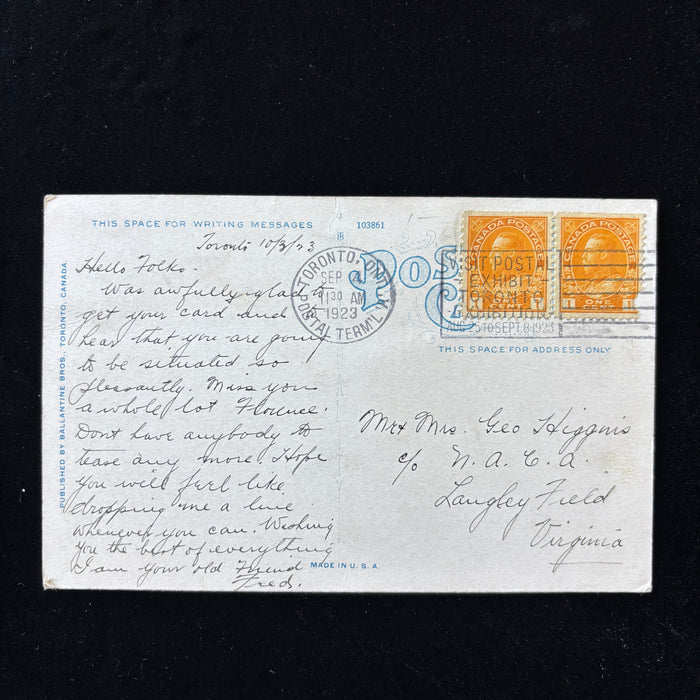 THIS SPACE FOR WRITING MESSAGES
103861
Toronto 10/3/23
Hello Folks.
Was awfully glad to
get your card and
hear that you are going
to be situated so
pleasantly. Miss you
a whole lot Florence.
Dont have anybody to
tease any more. Hope
you will feel like
dropping me a line
whenever you can. Wishing
you the best of everything
I am your old Friend
Fred.
PUBLISHED BY BALLANTINE BROS. TORONTO, CANADA.
MADE IN U.S.A.
TORONTO, ONT.
SEP
30 AM
1923
POSTAL TERM'L A
POS
CANADA POSTAGE
CANADA POSTAGE
1 ONE
VISIT POSTAL
EXHIBIT
TORONTO
EXHIBITION
AUG. 25 TO SEPT. 8 1923
THIS SPACE FOR ADDRESS ONLY
Mr & Mrs. Geo Higgins
c/o N. A. C. A.
Langley Field
Virginia